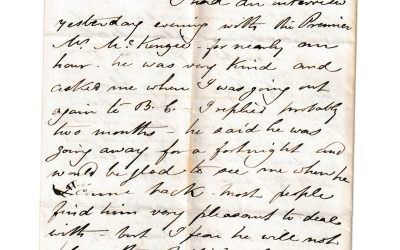 I had an interview
yesterday evening with the Premier
Mr McKenzie - for nearly an
hour. he was very kind and
asked me when I was going out
again to B. C - I replied probably
two months - he said he was
going away for a fortnight and
would be glad to see me when he
came back - most people
find him very pleasant to deal
with - but I fear he will not